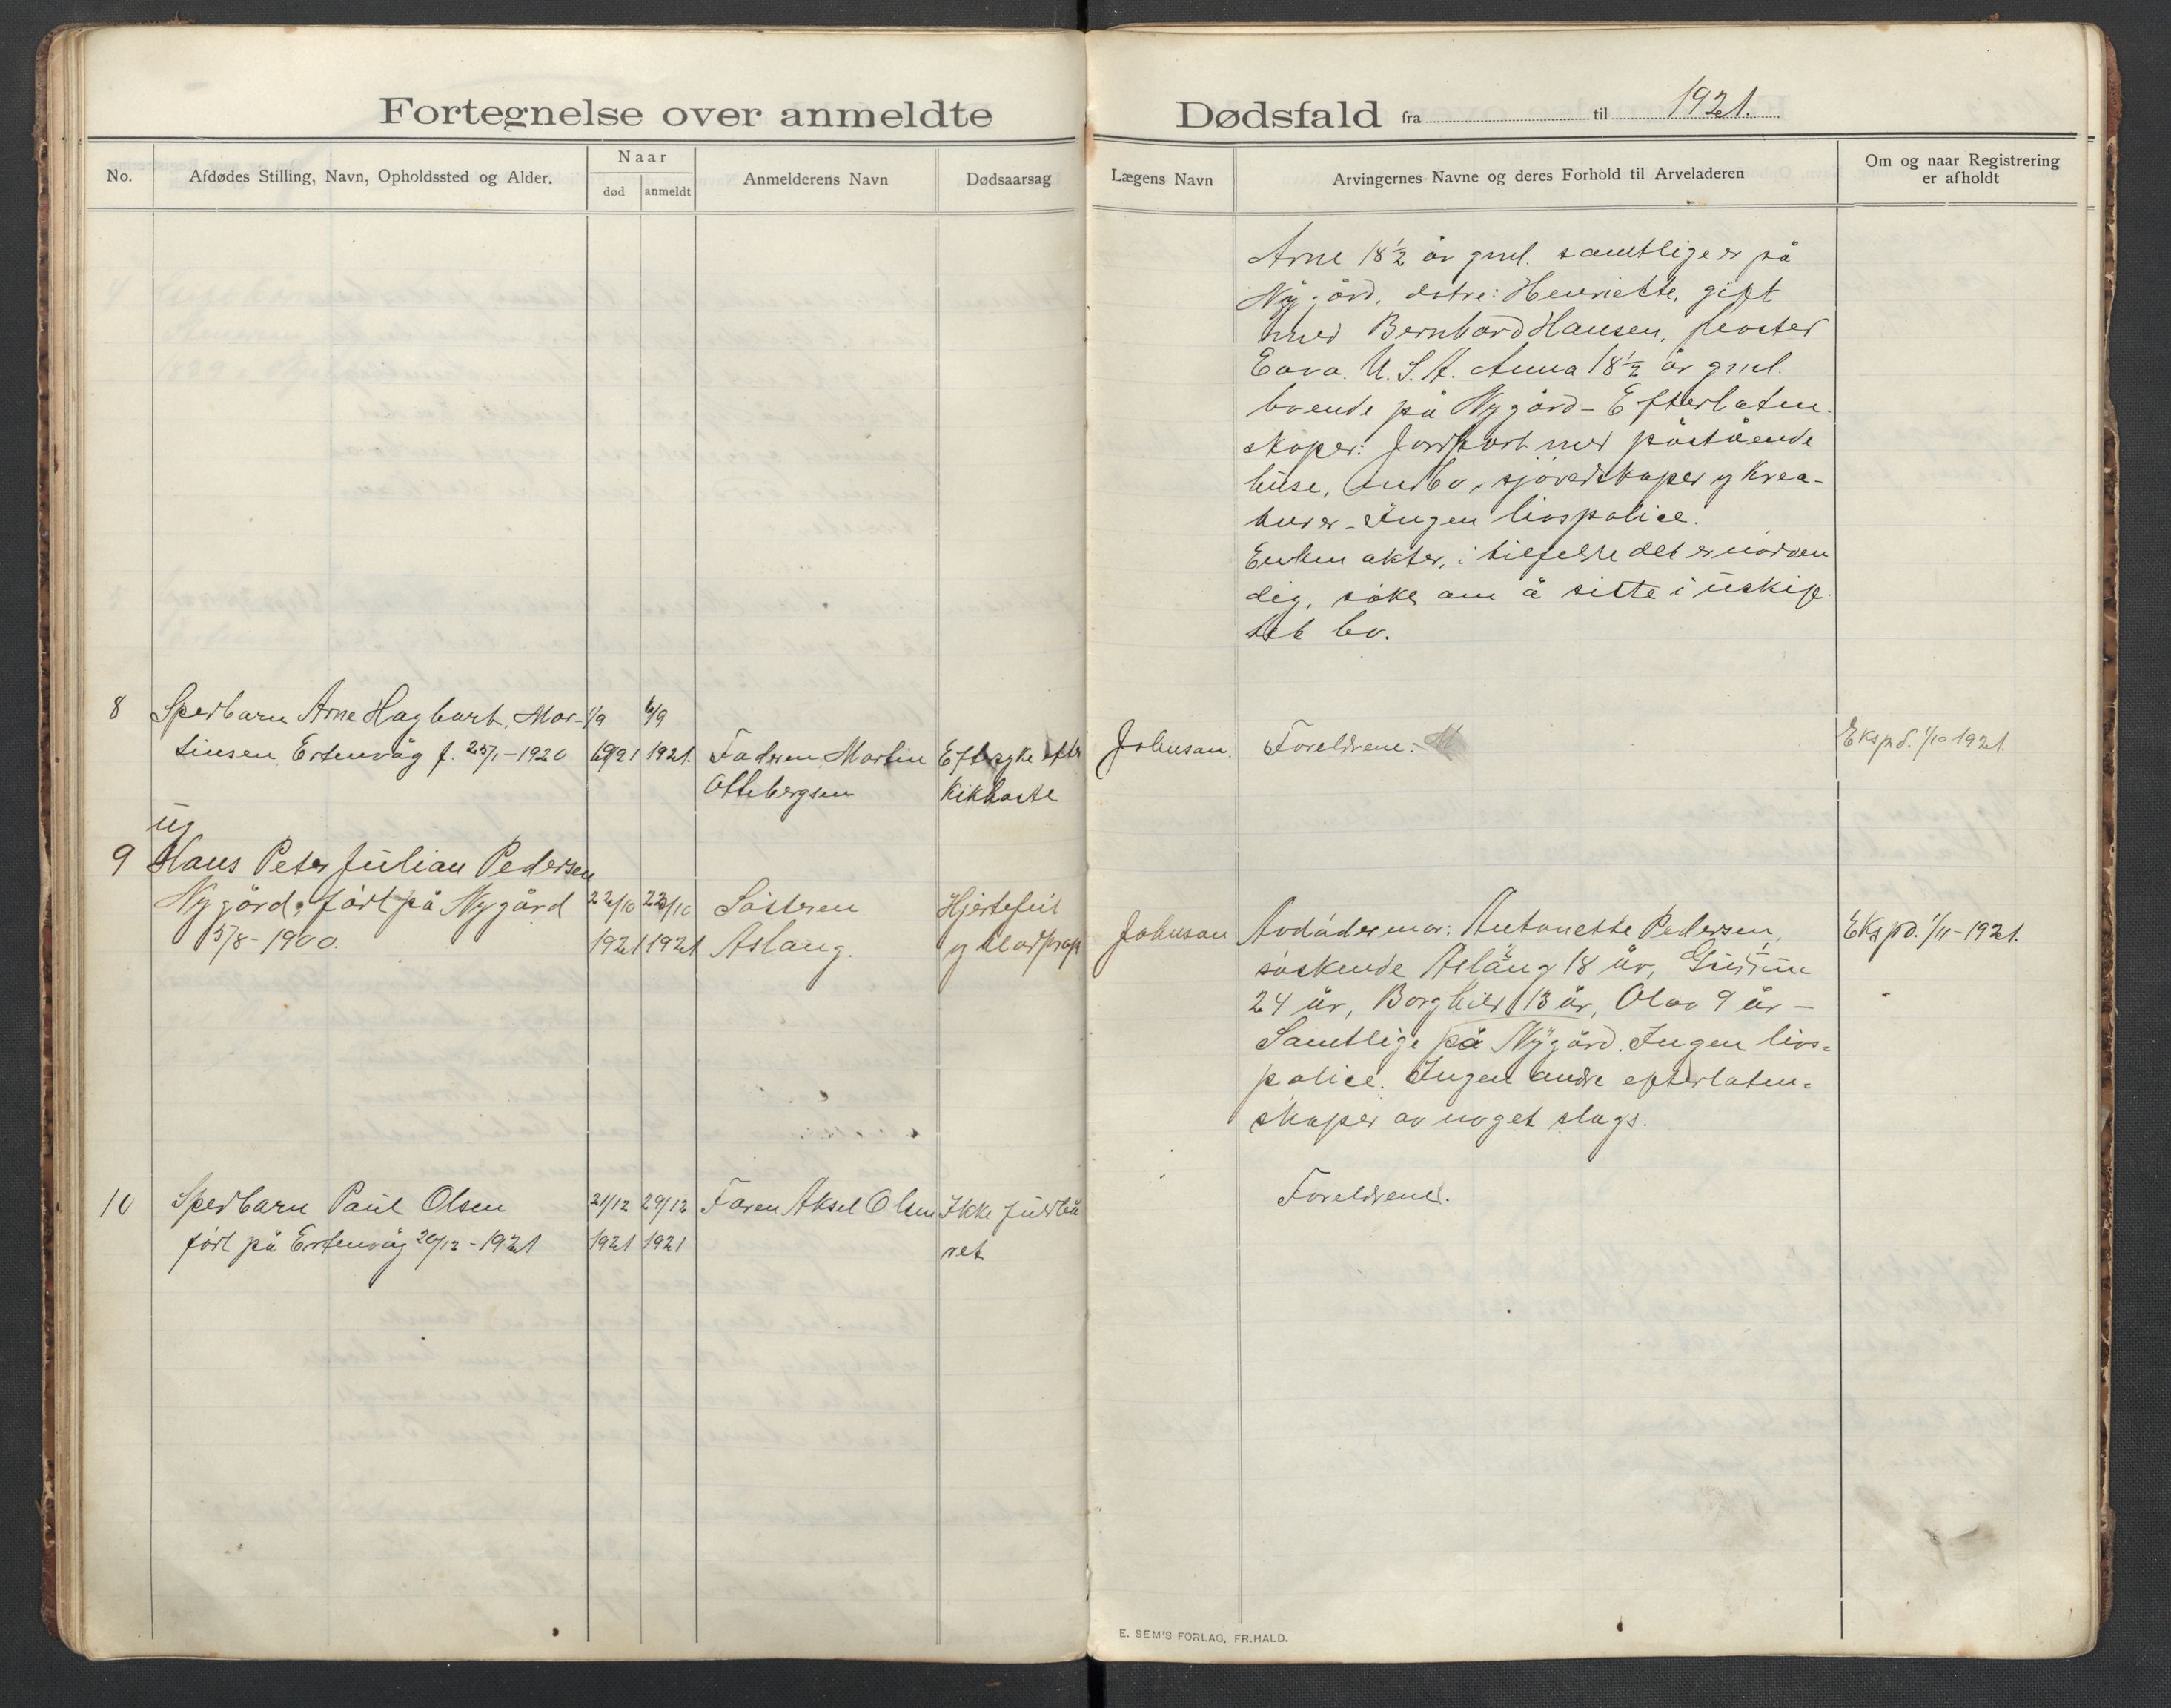 Fortegnelse over anmeldte Dødsfald fra til 1921.
No.
Afdødes Stilling, Navn, Opholdssted og Alder.
Naar
død
anmeldt
Anmelderens Navn
Dødsaarsag
Lægens Navn
Arvingernes Navne og deres Forhold til Arveladeren
Om og naar Registrering
er afholdt
Arne 18½ år gml. samtlige er på
Nygård, døtre: Henriette, gift
med Bernhard Hansen,
U.S.A. Anna 18½ år gml.
boende på Nygård - Efterlaten-
skaper: Jordpart med påstående
huse, innbo, sjøredskaper og krea-
turer - Ingen livspolice.
Enken akter, i tilfelle det er nødven
dig, søke om å sitte i uskif-
tet bo.
8
Spedbarn Arne Hagbart Mar-
tinsen Ertenvåg f. 25/1-1920
1/9
1921
6/9
1921.
Faderen Martin
Ottebergsen
Eftersyke efter
Kikhoste
Johnson.
Foreldrene.
Ekspd. 1/10 1921.
9
ug
Hans Peter Julian Pedersen
Nygård, født på Nygård
15/8-1900.
22/10
1921
23/10
1921
Søsteren
Aslaug.
Hjertefeil
og blodprop
Johnson
Avdødes mor: Antonette Pedersen,
søskende Aslaug 18 år, Gudrun
24 år, Borghild 13 år, Olav 9 år -
Samtlige på Nygård. Ingen livs-
police. Ingen andre efterlaten-
skaper av noget slags.
Ekspd. 1/11-1921.
10
Spedbarn Paul Olsen
født på Ertenvåg 20/12-1921
21/12
1921
29/12
1921
Faren Aksel Olsen
Ikke fuldbå
ret
Foreldrene.
E. SEM'S FORLAG, FR.HALD.